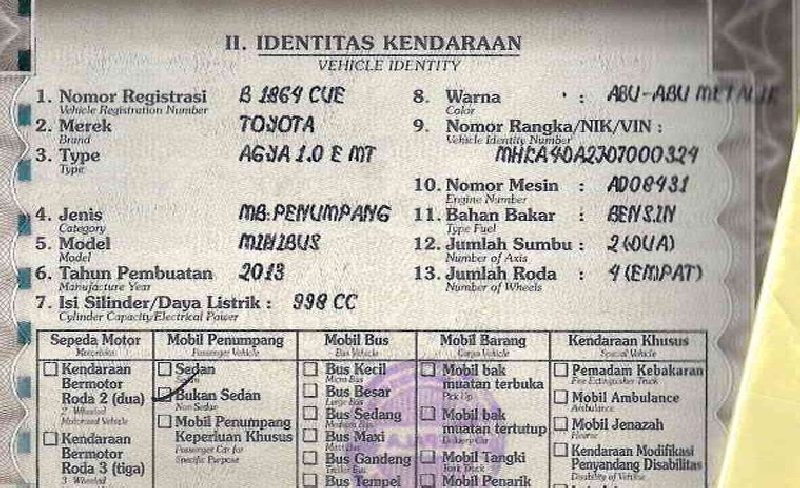 II. IDENTITAS KENDARAAN
VEHICLE IDENTITY
1. Nomor Registrasi B 1864 CUE
Vehicle Registration Number
2. Merek TOYOTA
Brand
3. Type AGYA 1.0 E MT
Type
4. Jenis MB.PENUMPANG
Category
5. Model MINIBUS
Model
6. Tahun Pembuatan 2013
Manufacture Year
7. Isi Silinder/Daya Listrik : 998 CC
Cylinder Capacity/Electrical Power
8. Warna : ABU-ABU METALIK
Color
9. Nomor Rangka/NIK/VIN :
Vehicle Identity Number
10. Nomor Mesin :
Engine Number
11. Bahan Bakar : BENSIN
Type Fuel
12. Jumlah Sumbu : 2 (DUA)
Number of Axis
13. Jumlah Roda : 4 (EMPAT)
Number of Wheels
Sepeda Motor
Motorbikes
Kendaraan
Bermotor
Roda 2 (dua)
2 Wheeled
Motorized Vehicle
Kendaraan
Bermotor
Roda 3 (tiga)
3 Wheeled
Mobil Penumpang
Passenger Vehicle
Sedan
Bukan Sedan
Non Sedan
Mobil Penumpang
Keperluan Khusus
Passenger Car for
Specific Purpose
Mobil Bus
Bus Vehicle
Bus Kecil
Micro Bus
Bus Besar
Large Bus
Bus Sedang
Medium Bus
Bus Maxi
Maxi Bus
Bus Gandeng
Bus Tempel
Mobil Barang
Cargo Vehicle
Mobil bak
muatan terbuka
Pick Up
Mobil bak
muatan tertutup
Delivery Car
Mobil Tangki
Tank Truck
Mobil Penarik
Kendaraan Khusus
Special Vehicle
Pemadam Kebakaran
Fire Extinguisher Truck
Mobil Ambulance
Ambulance
Mobil Jenazah
Hearse
Kendaraan Modifikasi
Penyandang Disabilitas
Disability of Vehicle